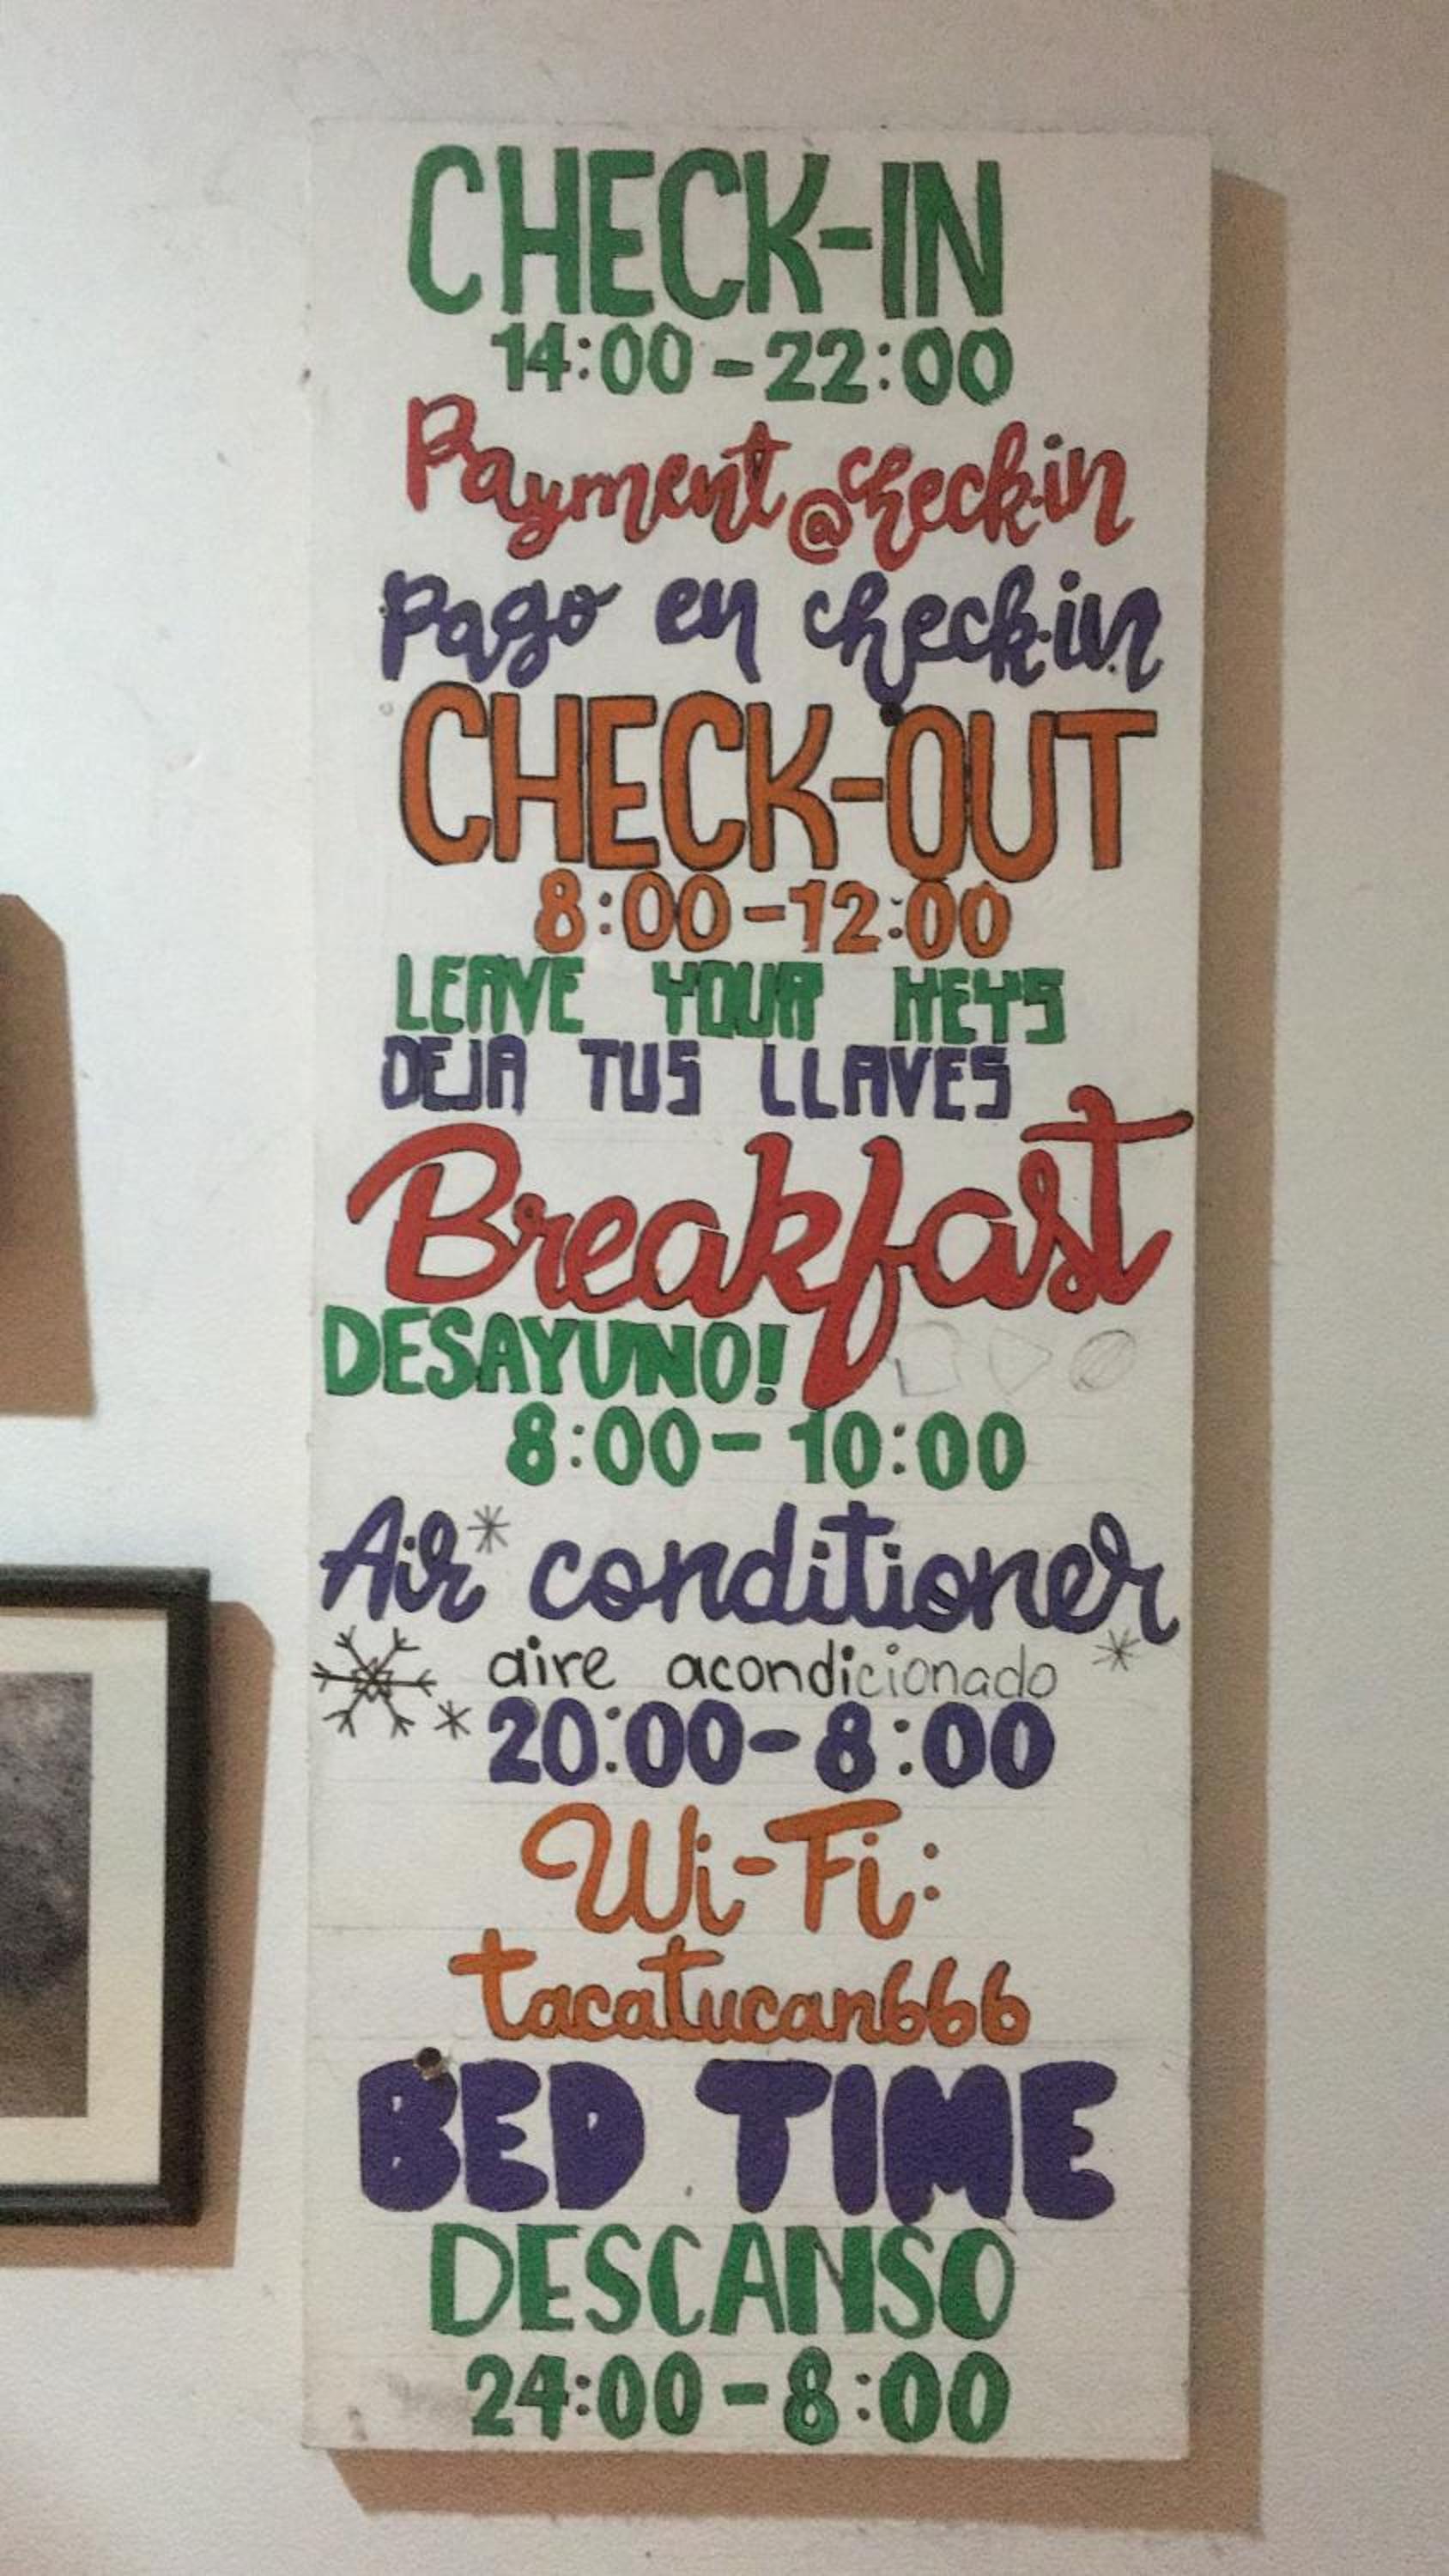 CHECK-IN
14:00-22:00
Payment @check-in
Pago en check-in
CHECK-OUT
8:00-12:00
LEAVE YOUR KEYS
DEJA TUS LLAVES
Breakfast
DESAYUNO!
8:00-10:00
Air* conditioner
aire acondicionado
20:00-8:00
Wi-Fi:
tacatucan666
BED TIME
DESCANSO
24:00-8:00